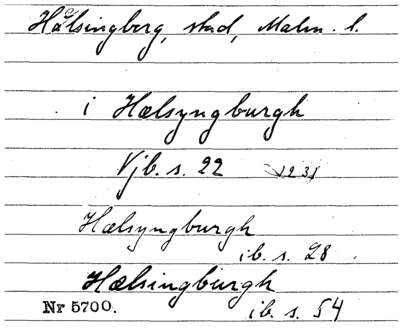 Hälsingborg, stad, Malm. l.
i Hælsyngburgh
Vjb. s. 22 1231
Hælsyngburgh
ib. s. 28.
Hælsingburgh
Nr 5700. ib. s. 54